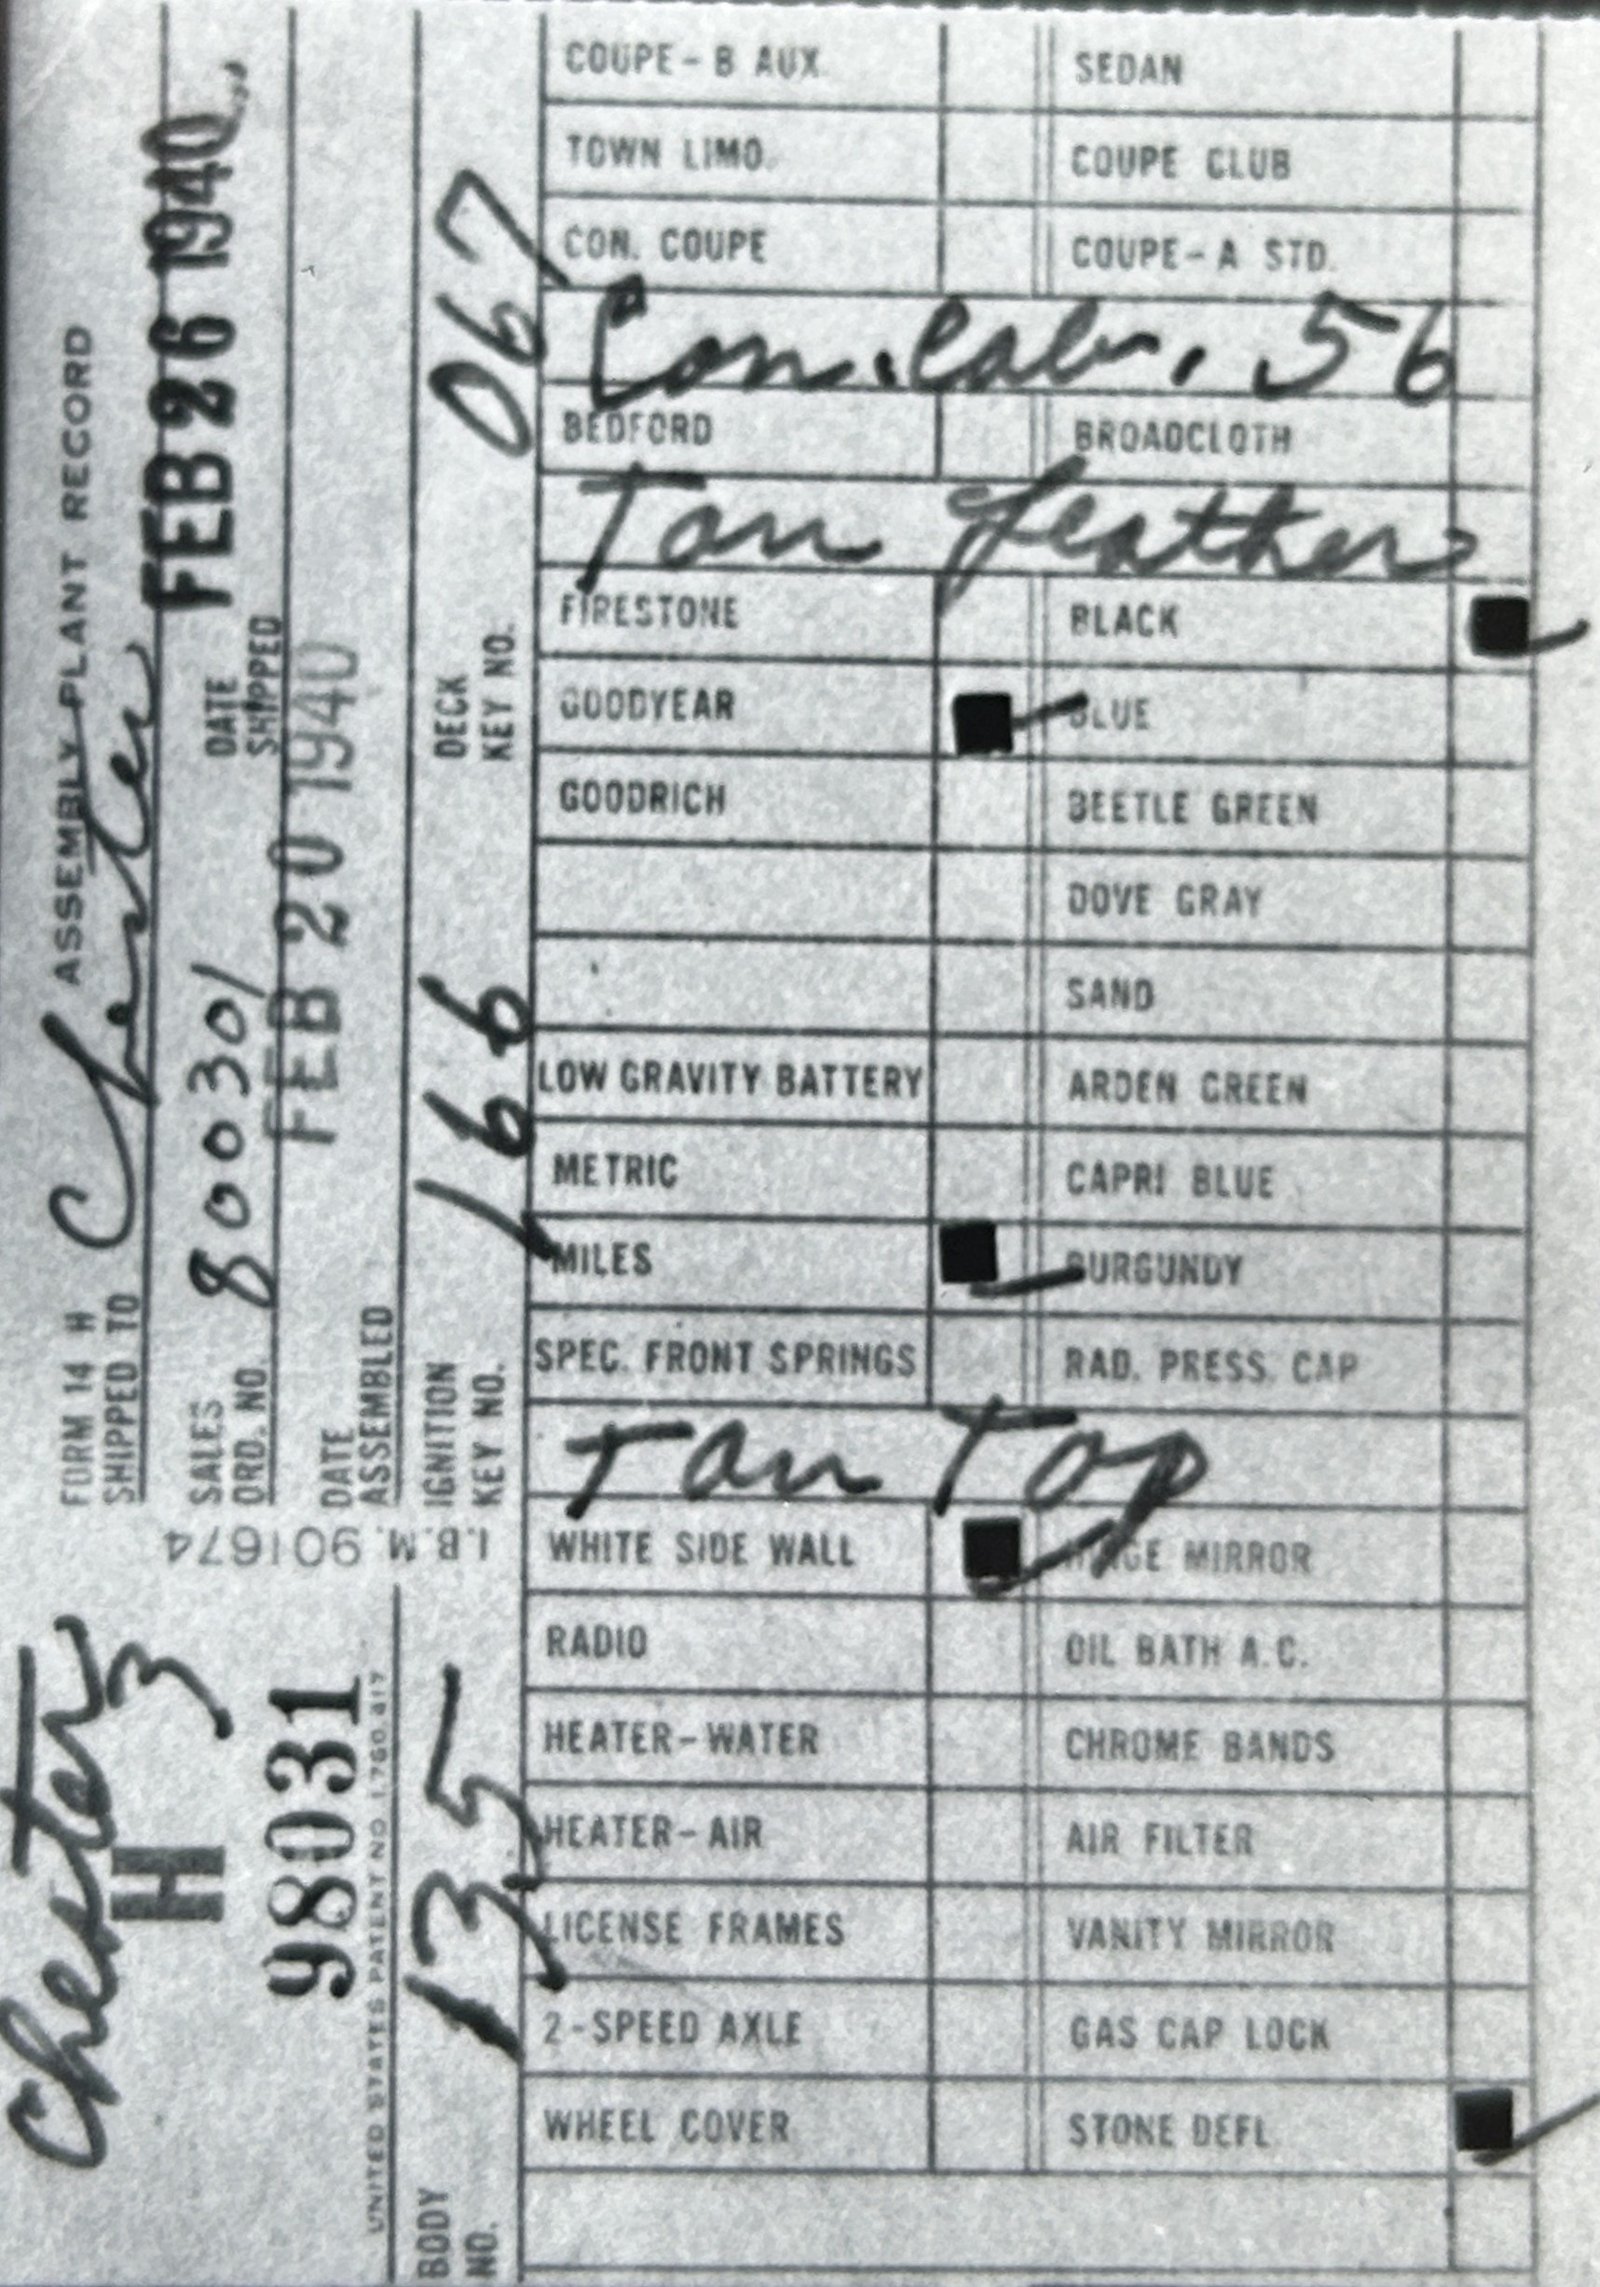 FORM 14 H ASSEMBLY PLANT RECORD
SHIPPED TO Chester
SALES ORD. NO. 800301 DATE SHIPPED FEB 26 1940
DATE ASSEMBLED FEB 20 1940
IGNITION KEY NO. 166 DECK KEY NO. 067
I.B.M. 901674
Chester
H 3
98031
UNITED STATES PATENT NO. 1,780,817
BODY NO. 135
COUPE-B AUX. SEDAN
TOWN LIMO. COUPE CLUB
CON. COUPE COUPE-A STD.
Con. Cab. 56
BEDFORD BROADCLOTH
Tan Leather
FIRESTONE BLACK
GOODYEAR BLUE
GOODRICH BEETLE GREEN
DOVE GRAY
SAND
LOW GRAVITY BATTERY ARDEN GREEN
METRIC CAPRI BLUE
MILES BURGUNDY
SPEC. FRONT SPRINGS RAD. PRESS. CAP
Tan Top
WHITE SIDE WALL HINGE MIRROR
RADIO OIL BATH A.C.
HEATER-WATER CHROME BANDS
HEATER-AIR AIR FILTER
LICENSE FRAMES VANITY MIRROR
2-SPEED AXLE GAS CAP LOCK
WHEEL COVER STONE DEFL.